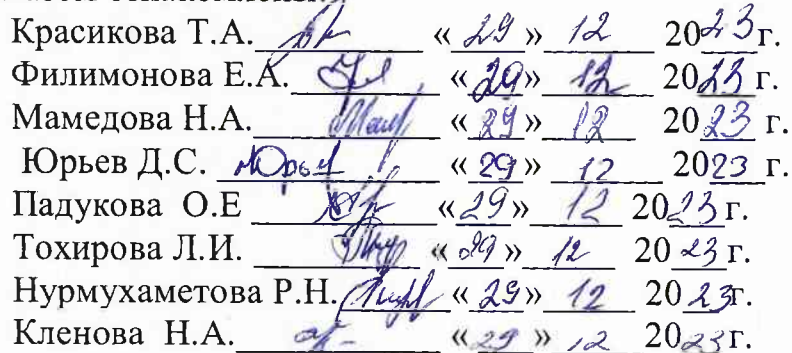 Красикова Т.А. « 29 » 12 2023г.
Филимонова Е.А. « 29» 12 2023г.
Мамедова Н.А. « 29 » 12 2023 г.
Юрьев Д.С. Юрьев « 29 » 12 2023 г.
Падукова О.Е « 29 » 12 2023г.
Тохирова Л.И. « 29 » 12 2023г.
Нурмухаметова Р.Н. « 29 » 12 2023г.
Кленова Н.А. « 29 » 12 2023г.